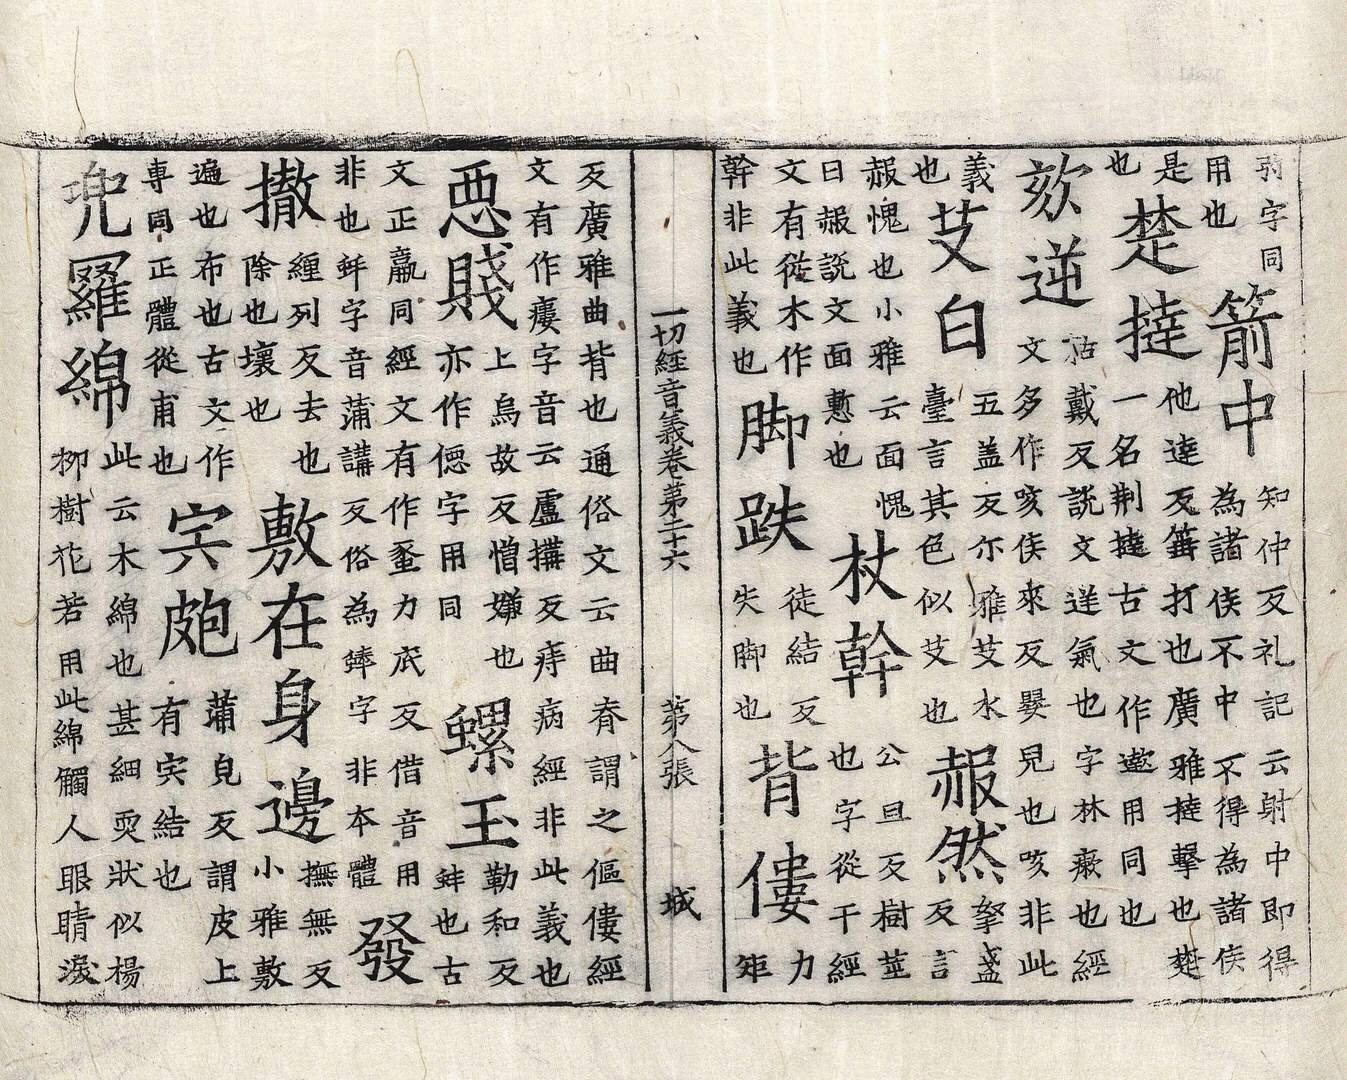 字同用也箭中知仲反礼記云射中即得為諸侯不中不得為諸侯
是也楚撻他達反箠打也廣雅撻擊也楚一名荆撻古文作用同也
欬逆枯戴反說文逆氣也字林瘷也經文多作咳侯來反嬰兒也咳非此
義也艾白五盖反尒雅艾水臺言其色似艾也赧然拏盞反言
赧愧也小雅云面愧曰赧說文面慙也杖幹公旦反樹莖也字從干經
文有從木作幹非此義也脚跌徒結反失脚也背僂力矩
一切經音義卷第二十六 第八張 城
反廣雅曲背也通俗文云曲脊謂之傴僂經文有作瘻字音云盧搆反痔病經非此義也
惡賤上烏故反憎嫌也亦作僫字用同螺王勒和反蚌也古
文正蠃同經文有作蚤力底反借音用非也蚌字音蒲講反俗為字非本體發
撤纏列反去也除也壞也敷在身邊撫無反小雅敷
遍也布也古文作専同正體從甫也㝑皰蒲皃反謂皮上有㝑結也
兜羅綿此云木綿也甚細耎狀似楊柳樹花若用此綿觸人眼睛淚